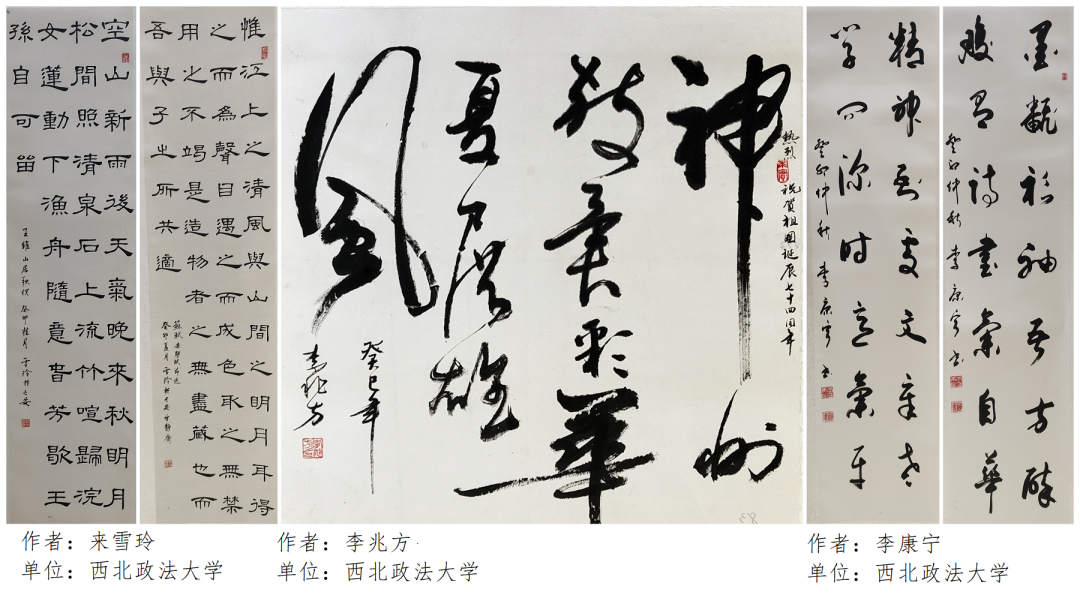 空山新雨後天氣晚來秋明月
松間照清泉石上流竹喧歸浣
女蓮動下漁舟隨意春芳歇王
孫自可留
王維山居秋暝 癸卯桂月 雪玲於長安
惟江上之清風與山間之明月耳得
之而為聲目遇之而成色取之無禁
用之不竭是造物者之無盡藏也而
吾與子之所共適
蘇軾赤壁賦節選
癸卯夏月雪玲於長安
熱烈祝賀祖國誕辰七十四周年
神州
放異彩華
夏展雄
風
癸巳年
李兆方
墨翻衫袖吾方醉
腹有詩書氣自華
癸卯仲秋 李康寧書
精神到處文章老
學問深時意氣平
癸卯仲秋 李康寧書
作者：来雪玲
单位：西北政法大学
作者：李兆方
单位：西北政法大学
作者：李康宁
单位：西北政法大学